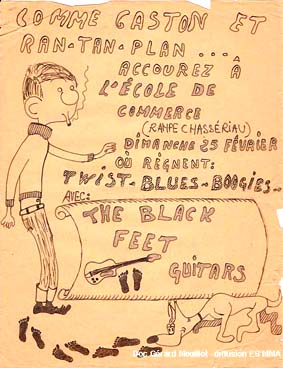 COMME GASTON ET
RAN-TAN-PLAN....
ACCOUREZ À
L'ÉCOLE DE
COMMERCE
(RAMPE CHASSÉRIAU)
DIMANCHE 25 FÉVRIER
OÙ RÈGNENT:
TWIST-BLUES-BOOGIES..
AVEC:
THE BLACK
FEET
GUITARS
Doc Gérard Meuillot diffusion ES'MMA